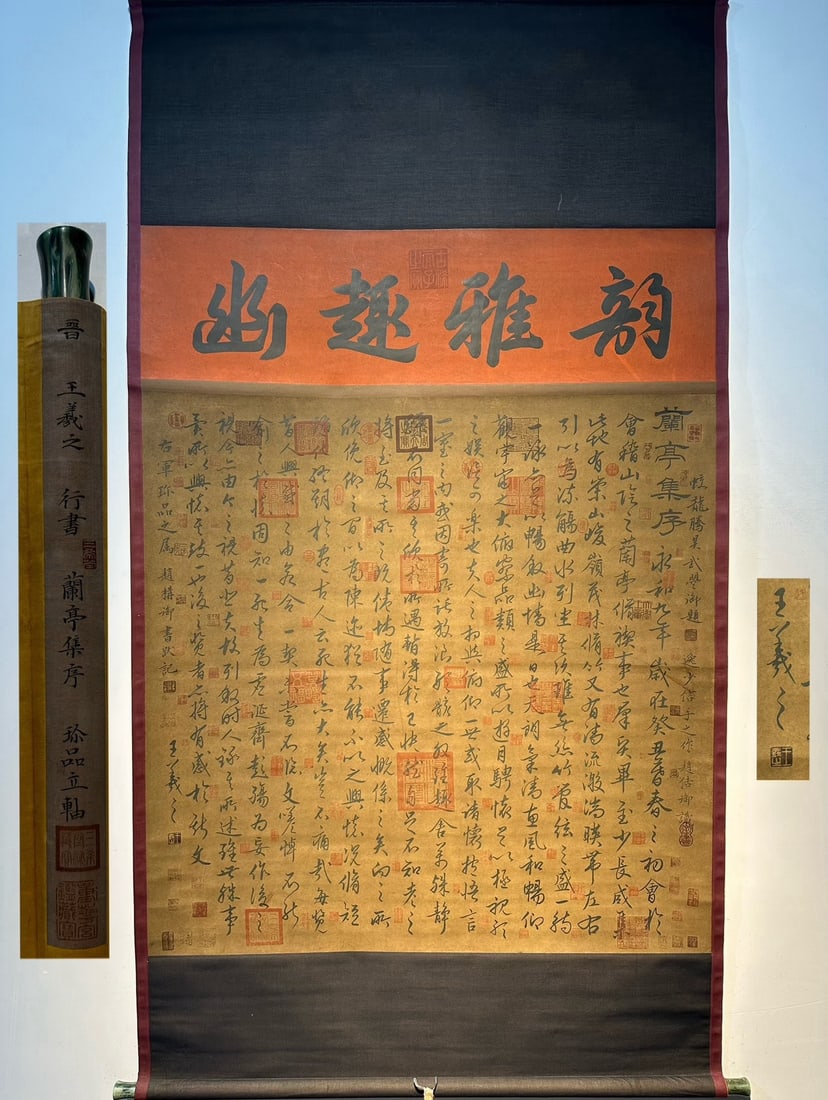 韵雅趣幽
蘭亭集序
永和九年歲在癸丑暮春之初會於
會稽山陰之蘭亭脩禊事也羣賢畢至少長咸集
此地有崇山峻嶺茂林脩竹又有清流激湍暎帶左右
引以為流觴曲水列坐其次雖無絲竹管弦之盛一觴
一詠亦足以暢敘幽情是日也天朗氣清惠風和暢仰
觀宇宙之大俯察品類之盛所以遊目騁懷足以極視聽
之娛信可樂也夫人之相與俯仰一世或取諸懷抱悟言
一室之內或因寄所託放浪形骸之外雖趣舍萬殊靜
躁不同當其欣於所遇暫得於己快然自足不知老之
將至及其所之既倦情隨事遷感慨係之矣向之所
欣俛仰之間以為陳迹猶不能不以之興懷況脩短
隨化終期於盡古人云死生亦大矣豈不痛哉每覽
昔人興感之由若合一契未嘗不臨文嗟悼不能
喻之於懷固知一死生為虛誕齊彭殤為妄作後之
視今亦由今之視昔悲夫故列敘時人錄其所述雖世殊事
異所以興懷其致一也後之覽者亦將有感於斯文
王羲之
右軍珍品之屬 趙構御書跋記
武曌御題
逸少信手之作 趙佶御
晉 王羲之 行書 蘭亭集序 珍品立軸
王羲之